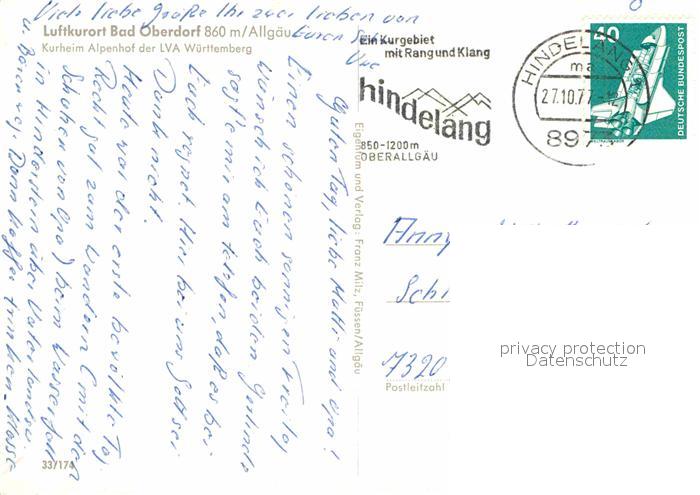 Viele liebe Grüße Ihr zwei Lieben von
Eurem
Luftkurort Bad Oberdorf 860 m/Allgäu
Kurheim Alpenhof der LVA Württemberg
Guten Tag, liebe Mutti und Opa!
Einen schönen sonnigen Freitag
wünsch ich Euch beiden. Gerlinde
sagte mir am Telefon, daß es bei
Euch regnet. Hier bei uns Gott sei
Dank nicht.
Heute war der erste bewölkte Tag.
Recht gut zum Wandern (mit den
Schuhen von Opa) beim Wasserfall
in Hinterstein über Vaterlandsweg
u. Dann Kaffee trinken
33/174
Eigentum und Verlag: Franz Milz, Füssen/Allgäu
Ein Kurgebiet
mit Rang und Klang
hindelang
850-1200m
OBERALLGÄU
HINDELANG
ma
27.10.77
897
40
DEUTSCHE BUNDESPOST
Anny
Sch
7320
Postleitzahl
privacy protection
Datenschutz